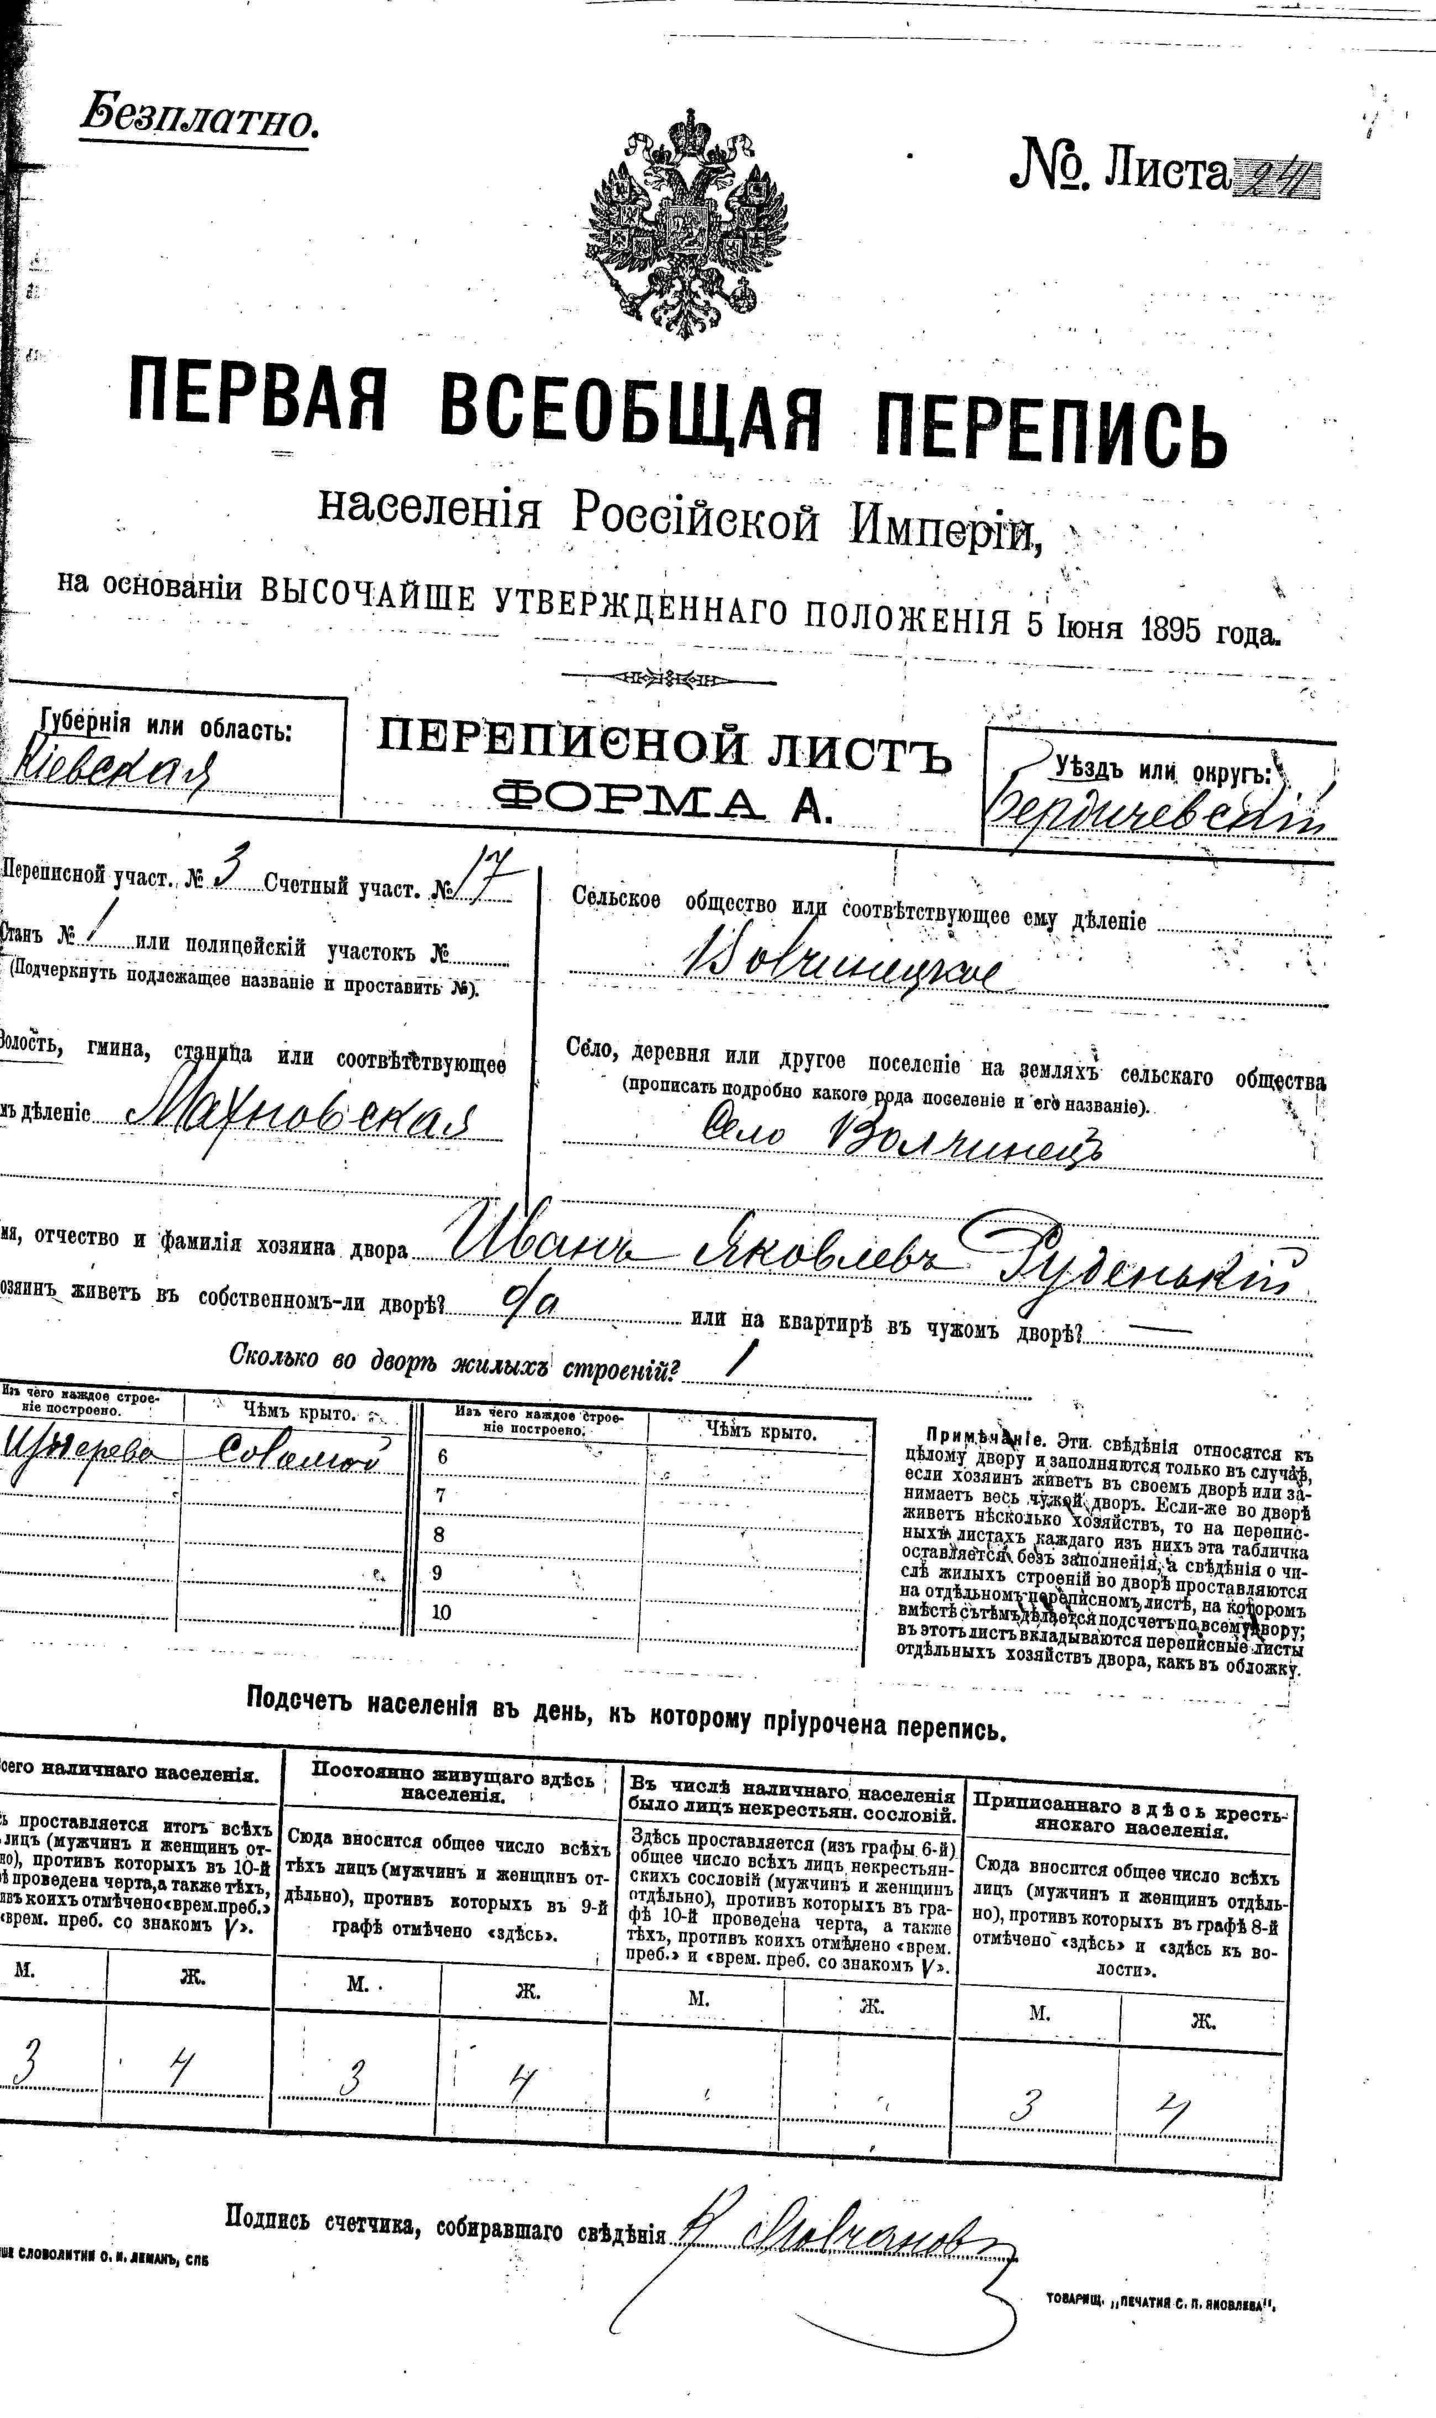 Безплатно.
№. Листа 241
ПЕРВАЯ ВСЕОБЩАЯ ПЕРЕПИСЬ
населенія Россійской Имперіи,
на основаніи ВЫСОЧАЙШЕ УТВЕРЖДЕННАГО ПОЛОЖЕНІЯ 5 Іюня 1895 года.
Губернія или область:
Кіевская
ПЕРЕПИСНОЙ ЛИСТЪ
ФОРМА А.
Уѣздъ или округъ:
Бердичевскій
Переписной участ. № 3 Счетный участ. № 17
Станъ № 1 или полицейскій участокъ №
(Подчеркнуть подлежащее названіе и проставить №).
Волость, гмина, станица или соотвѣтствующее
мъ дѣленіе Махновская
Сельское общество или соотвѣтствующее ему дѣленіе
Вовчинецкое
Село, деревня или другое поселеніе на земляхъ сельскаго общества
(прописать подробно какого рода поселеніе и его названіе).
Село Волчинецъ
мя, отчество и фамилія хозяина двора Иванъ Яковлевъ Руденькій
озяинъ живетъ въ собственномъ-ли дворѣ? да или на квартирѣ въ чужомъ дворѣ? —
Сколько во дворѣ жилыхъ строеній? 1
Изъ чего каждое строе-
ніе построено.
Чѣмъ крыто.
Изъ чего каждое строе-
ніе построено.
Чѣмъ крыто.
Издерева Соломой
6
7
8
9
10
Примѣчаніе. Эти свѣдѣнія относятся къ
цѣлому двору и заполняются только въ случаѣ,
если хозяинъ живетъ въ своемъ дворѣ или за-
нимаетъ весь чужой дворъ. Если-же во дворѣ
живетъ нѣсколько хозяйствъ, то на перепис-
ныхъ листахъ каждаго изъ нихъ эта табличка
оставляется безъ заполненія, а свѣдѣнія о чи-
слѣ жилыхъ строеній во дворѣ проставляются
на отдѣльномъ переписномъ листѣ, на которомъ
вмѣстѣ съ тѣмъ дѣлается подсчетъ по всему двору;
въ этотъ листъ вкладываются переписные листы
отдѣльныхъ хозяйствъ двора, какъ въ обложку.
Подсчетъ населенія въ день, къ которому пріурочена перепись.
сего наличнаго населенія.
ь проставляется итогъ всѣхъ
лицъ (мужчинъ и женщинъ от-
но), противъ которыхъ въ 10-й
ѣ проведена черта, а также тѣхъ,
ивъ коихъ отмѣчено «врем. преб.»
«врем. преб. со знакомъ V».
Постоянно живущаго здѣсь
населенія.
Сюда вносится общее число всѣхъ
тѣхъ лицъ (мужчинъ и женщинъ от-
дѣльно), противъ которыхъ въ 9-й
графѣ отмѣчено «здѣсь».
Въ числѣ наличнаго населенія
было лицъ некрестьян. сословій.
Здѣсь проставляется (изъ графы 6-й)
общее число всѣхъ лицъ некрестьян-
скихъ сословій (мужчинъ и женщинъ
отдѣльно), противъ которыхъ въ гра-
фѣ 10-й проведена черта, а также
тѣхъ, противъ коихъ отмѣчено «врем.
преб.» и «врем. преб. со знакомъ V».
Приписаннаго здѣсь кресть-
янскаго населенія.
Сюда вносится общее число всѣхъ
лицъ (мужчинъ и женщинъ отдѣль-
но), противъ которыхъ въ графѣ 8-й
отмѣчено «здѣсь» и «здѣсь къ во-
лости».
М. Ж. М. Ж. М. Ж. М. Ж.
3 4 3 4 3 4
Подпись счетчика, собиравшаго свѣдѣнія К Молчановъ
ШЕ СЛОВОЛИТНИ О. И. ЛЕМАНЪ, СПБ
ТОВАРИЩ. „ПЕЧАТНЯ С. П. ЯКОВЛЕВА".